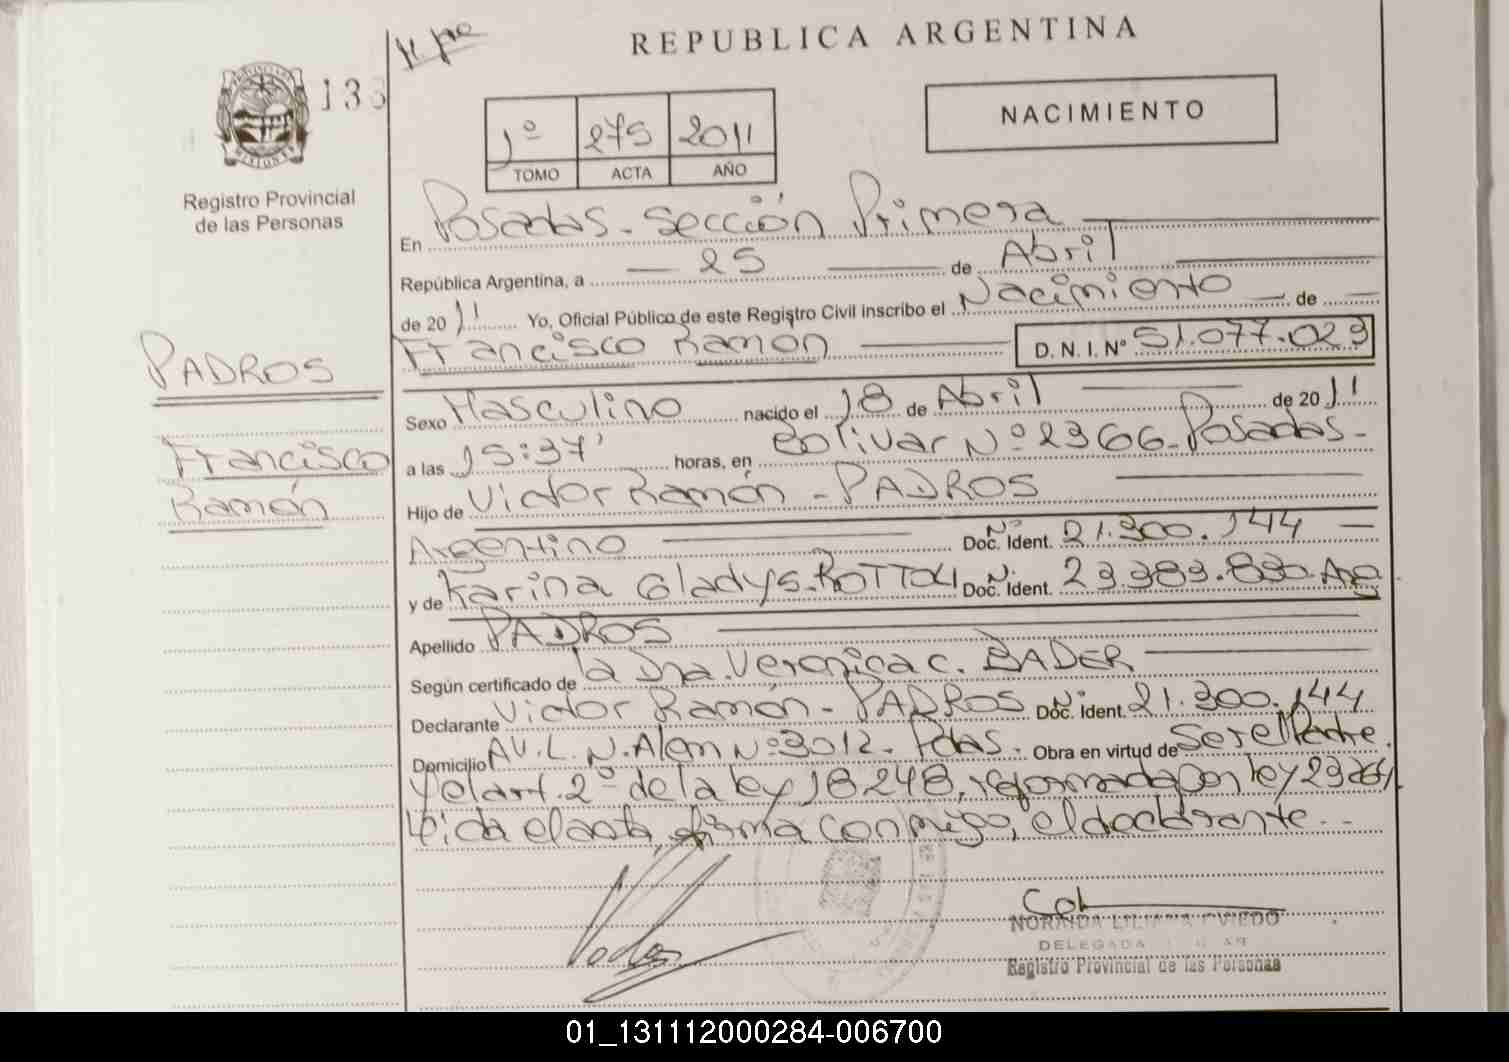 REPUBLICA ARGENTINA
133
PROVINCIA DE
MISIONES
Registro Provincial
de las Personas
1º 275 2011
TOMO ACTA AÑO
NACIMIENTO
En Posadas - Sección Primera
República Argentina, a 25 de Abril
de 2011 Yo, Oficial Público de este Registro Civil inscribo el Nacimiento de
Francisco Ramón D. N. I. Nº 51.077.029
PADROS
Francisco
Ramón
Sexo Masculino nacido el 18 de Abril de 2011
a las 15:37' horas, en Bolivar Nº 2366 - Posadas -
Hijo de Victor Ramón - PADROS
Argentino Nº Doc. Ident. 21.300.144
y de Karina Gladys - BOTTOLI Nº Doc. Ident. 23.383.830 - Arg
Apellido PADROS
Según certificado de la Dra. Veronica C. BADER
Declarante Victor Ramón - PADROS Nº Doc. Ident. 21.300.144
Domicilio AV. L. N. Alem Nº 3012 - Pdas. Obra en virtud de ser el Padre
y el art. 2º de la ley 18248, reformada por ley 23264
Leida el acta, firma conmigo, el declarante --
NORAIDA LILIANA OVIEDO
DELEGADA
Registro Provincial de las Personas
01_131112000284-006700